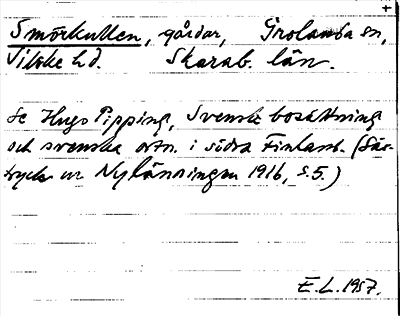 +
Smörkullen, gårdar, Grolanda sn,
Vilske hd. Skarab. län.
Se Hugo Pipping, Svensk bosättning
och svenska ortn. i södra Finland. (Sär-
tryck ur Nylänningen 1916, s. 5.)
E. L. 1957.